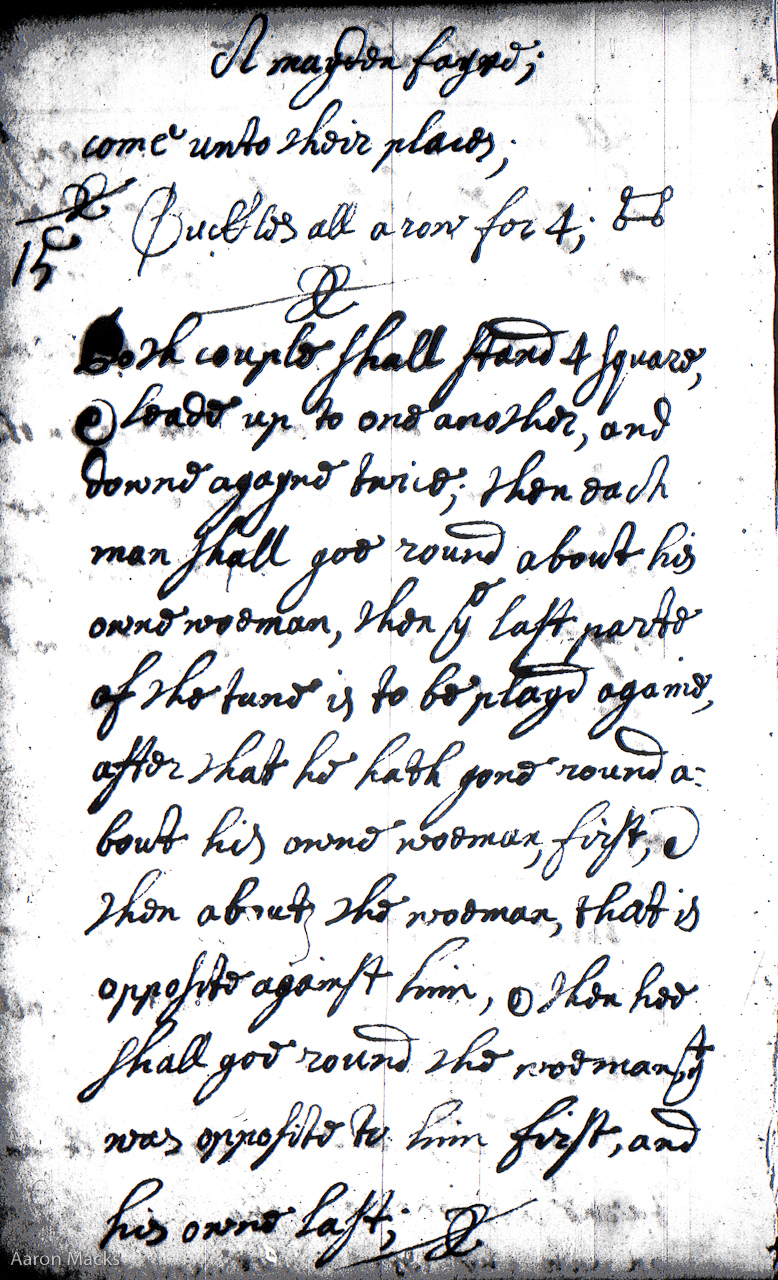 A mayden fayre;
come unto their places;
15
Buckles all a row for 4;
Both couple shall stand 4 square,
& leade up to one another, and
downe agayne twice; then each
man shall goe round about his
owne woeman, then yᵉ last parte
of the tune is to be playd againe,
after that he hath gone round a:
bout his owne woeman, first, &
then about the woeman, that is
opposite against him, & then hee
shall goe round the woeman, yᵗ
was opposite to him first, and
his owne last;
Aaron Macks